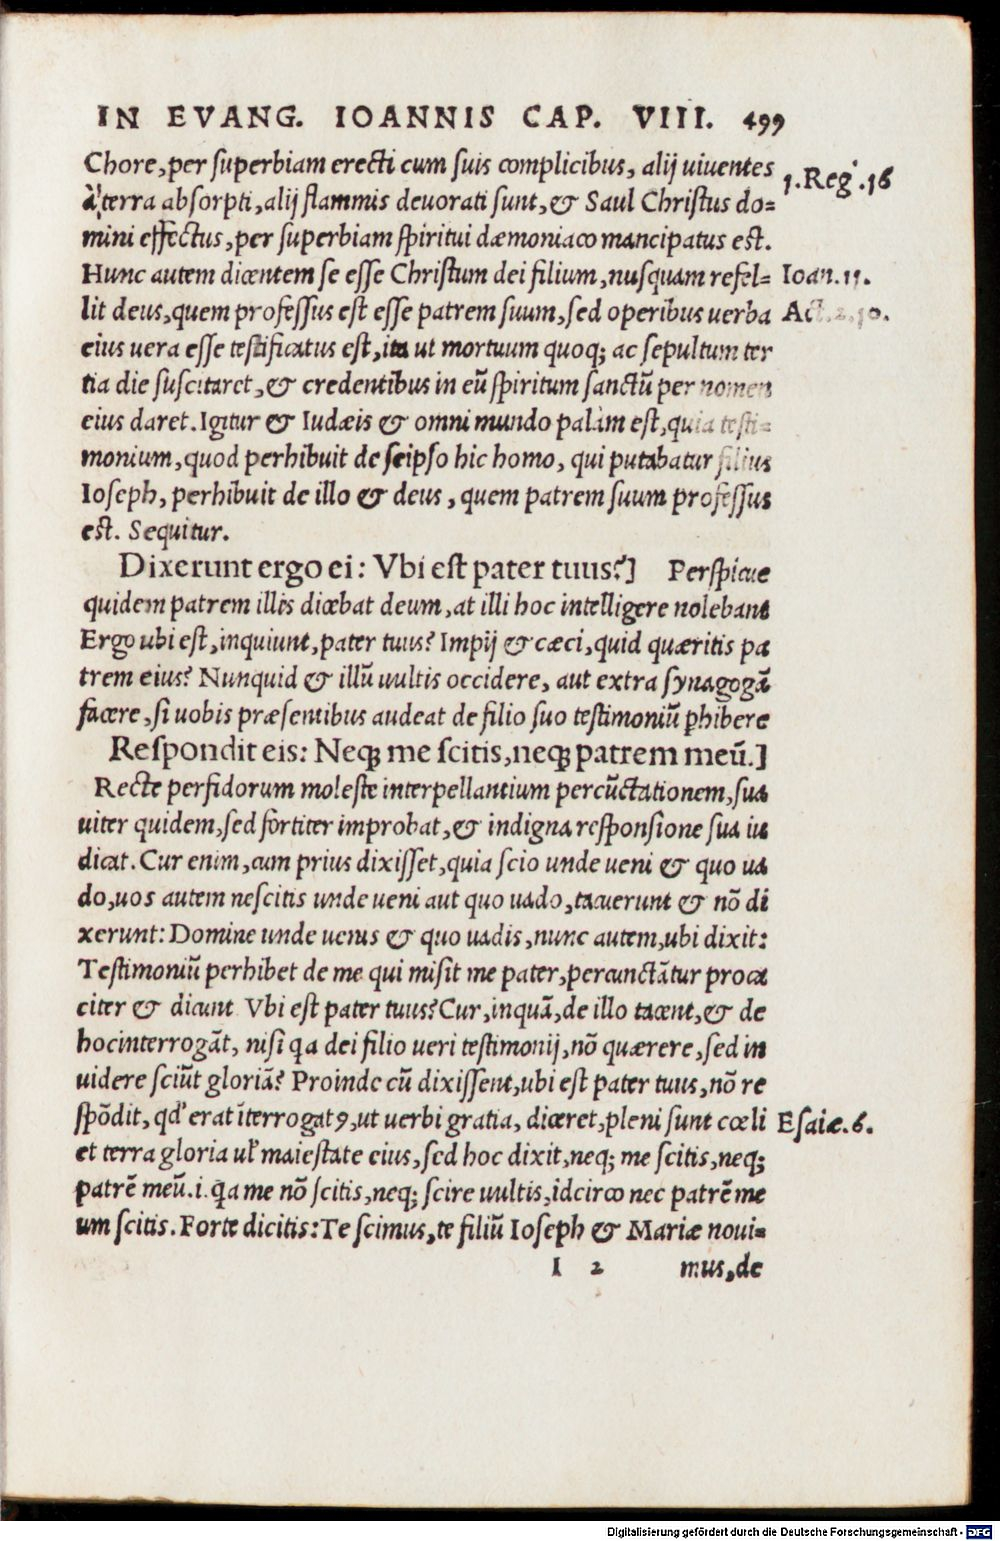 IN EVANG. IOANNIS CAP. VIII. 499
Chore, per superbiam erecti cum suis complicibus, alij uiuentes
à terra absorpti, alij flammis deuorati sunt, & Saul Christus do=
mini effectus, per superbiam spiritui dæmoniaco mancipatus est.
Hunc autem dicentem se esse Christum dei filium, nusquam refel=
lit deus, quem professus est esse patrem suum, sed operibus uerba
eius uera esse testificatus est, ita ut mortuum quoq; ac sepultum ter
tia die suscitaret, & credentibus in eū spiritum sanctū per nomen
eius daret. Igitur & Iudæis & omni mundo palàm est, quia testi=
monium, quod perhibuit de seipso hic homo, qui putabatur filius
Ioseph, perhibuit de illo & deus, quem patrem suum professus
est. Sequitur.
1. Reg. 16
Ioan. 11.
Act. 2. 10.
Dixerunt ergo ei: Vbi est pater tuus?] Perspicue
quidem patrem illis dicebat deum, at illi hoc intelligere nolebant
Ergo ubi est, inquiunt, pater tuus? Impij & cæci, quid quæritis pa
trem eius? Nunquid & illū uultis occidere, aut extra synagogā
facere, si uobis præsentibus audeat de filio suo testimoniū ꝑhibere
Respondit eis: Neq; me scitis, neq; patrem meū.]
Recte perfidorum moleste interpellantium percūctationem, sua
uiter quidem, sed fortiter improbat, & indigna responsione sua iu
dicat. Cur enim, cum prius dixisset, quia scio unde ueni & quo ua
do, uos autem nescitis unde ueni aut quo uado, tacuerunt & nō di
xerunt: Domine unde uenis & quo uadis, nunc autem, ubi dixit:
Testimoniū perhibet de me qui misit me pater, percunctātur proca
citer & dicunt Vbi est pater tuus? Cur, inquā, de illo tacent, & de
hoc interrogāt, nisi qa dei filio ueri testimonij, nō quærere, sed in
uidere sciūt gloriā? Proinde cū dixissent, ubi est pater tuus, nō re
spōdit, qd' erat īterrogatꝰ, ut uerbi gratia, diceret, pleni sunt cœli
et terra gloria ul' maiestate eius, sed hoc dixit, neq; me scitis, neq;
patrē meū. i. qa me nō scitis, neq; scire uultis, idcirco nec patrē me
um scitis. Forte dicitis: Te scimus, te filiū Ioseph & Mariæ noui=
Esaiæ. 6.
I 2 mus, de
Digitalisierung gefördert durch die Deutsche Forschungsgemeinschaft - DFG